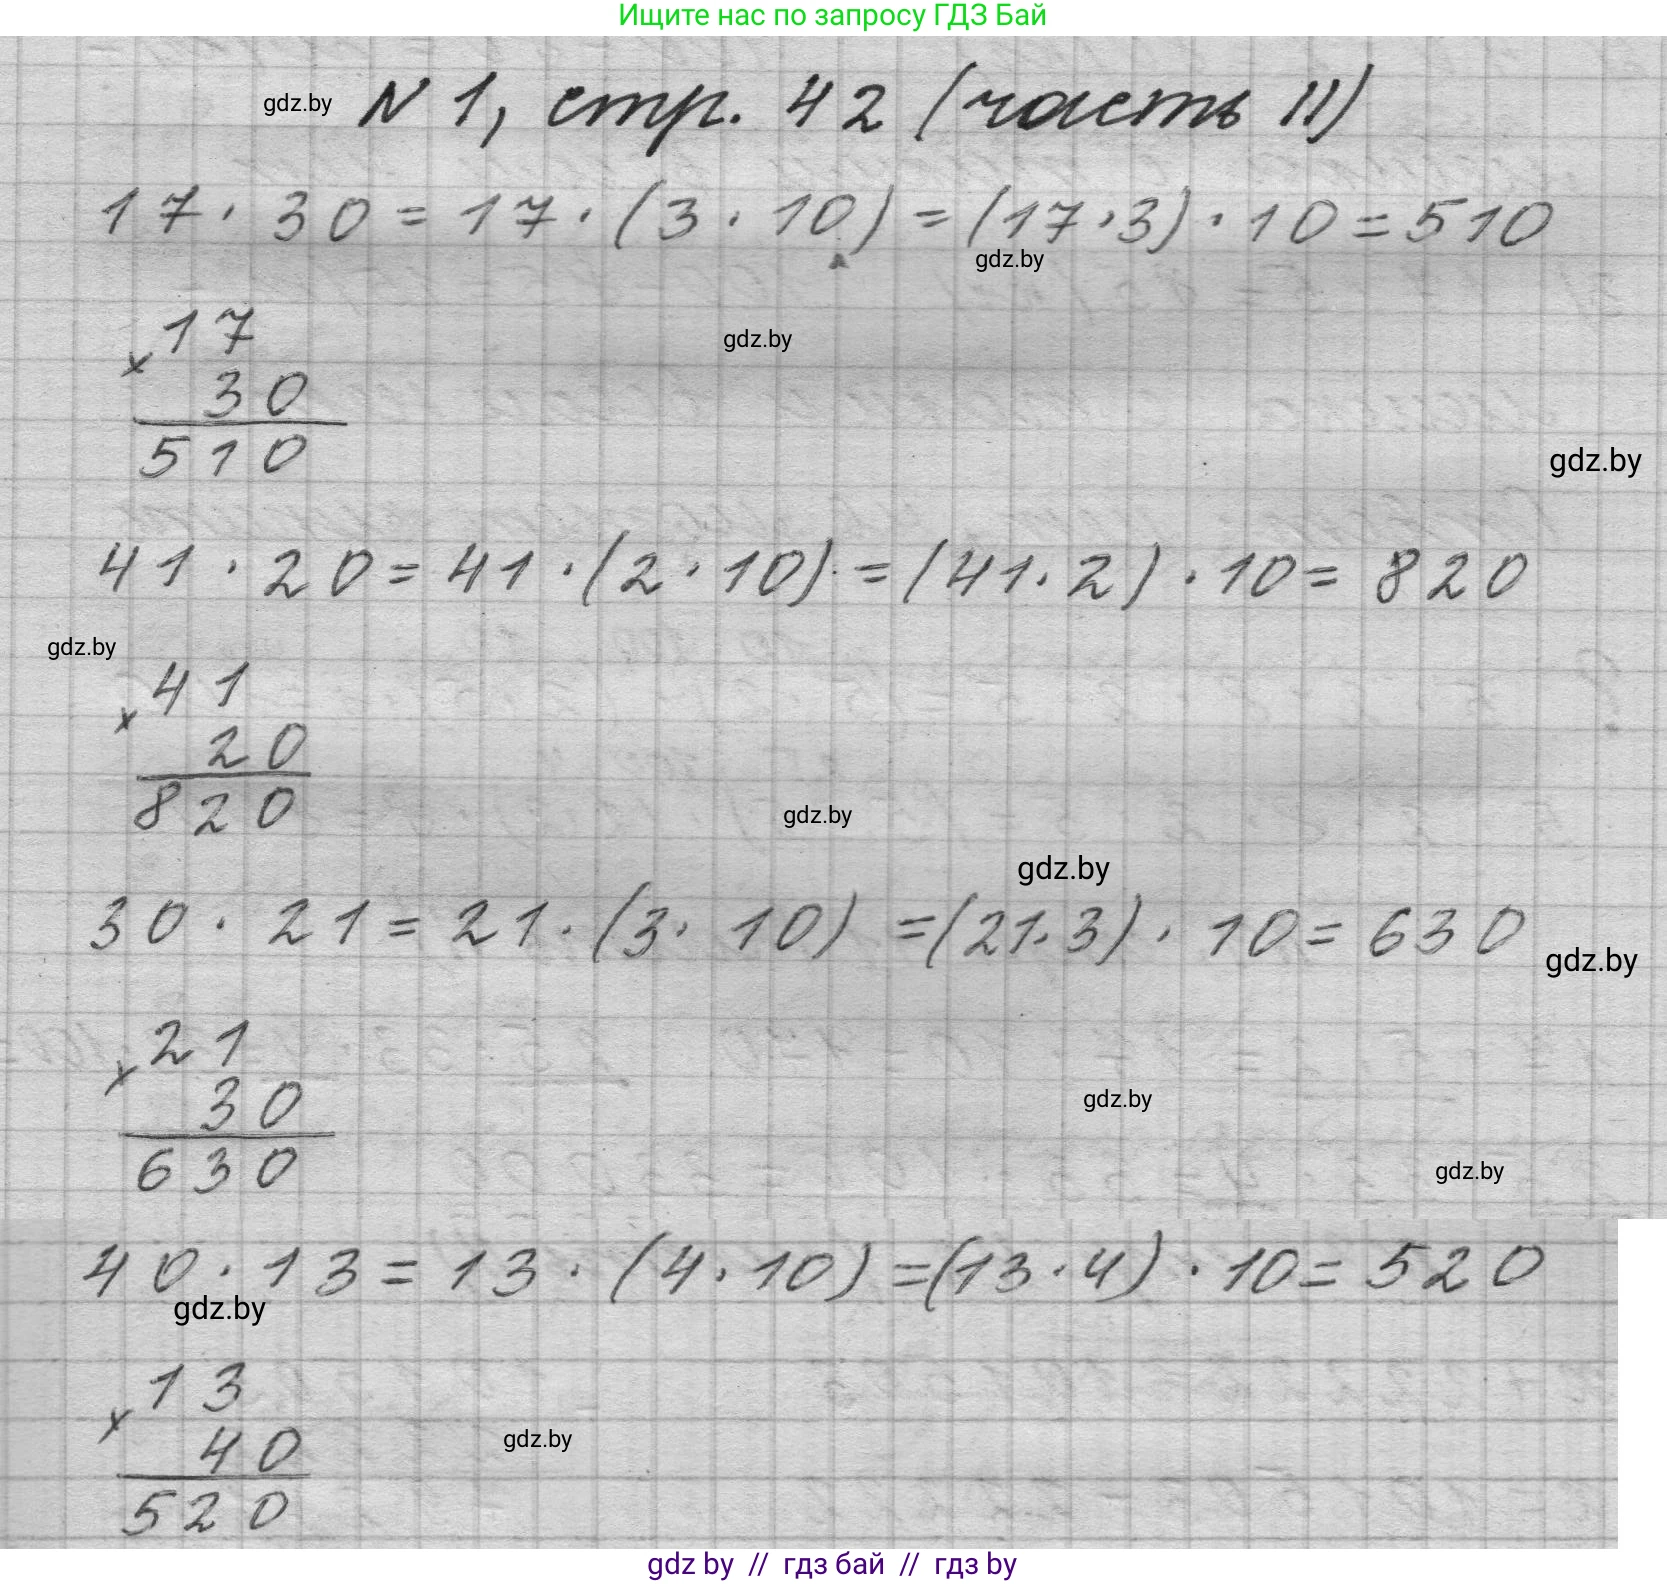 Ищите нас по запросу ГДЗ Бай
gdz.by N 1, стр. 42 (часть II)
17 · 30 = 17 · (3 · 10) = (17 · 3) · 10 = 510
gdz.by
gdz.by
× 17
30
510
gdz.by
41 · 20 = 41 · (2 · 10) = (41 · 2) · 10 = 820
gdz.by
× 41
20
820
gdz.by
gdz.by
30 · 21 = 21 · (3 · 10) = (21 · 3) · 10 = 630
gdz.by
× 21
30
630
gdz.by
gdz.by
40 · 13 = 13 · (4 · 10) = (13 · 4) · 10 = 520
gdz.by
× 13
40
520
gdz.by
gdz by // гдз бай // гдз by